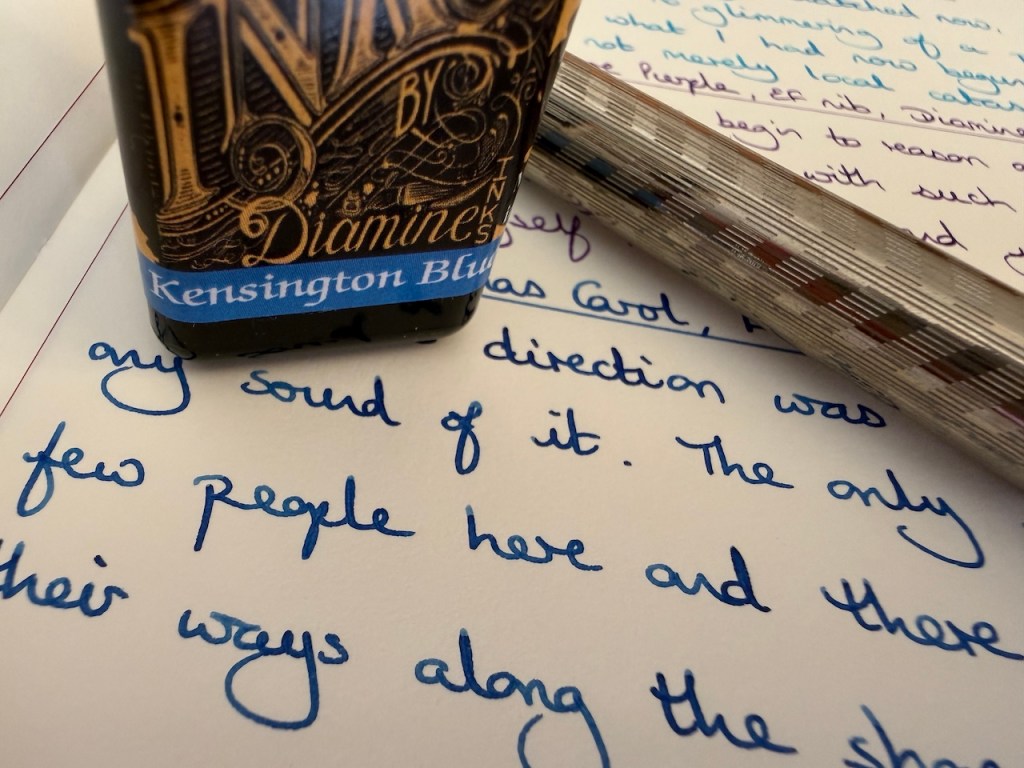 INK
BY
Diamine
INKS
Kensington Blue
matched now.
glimmering of a
what I had now begun
not merely local
Purple, EF nib, Diamine
begin to reason
with such
myself
Carol,
any direction was
sound of it. The only
few people here and there
their ways along the